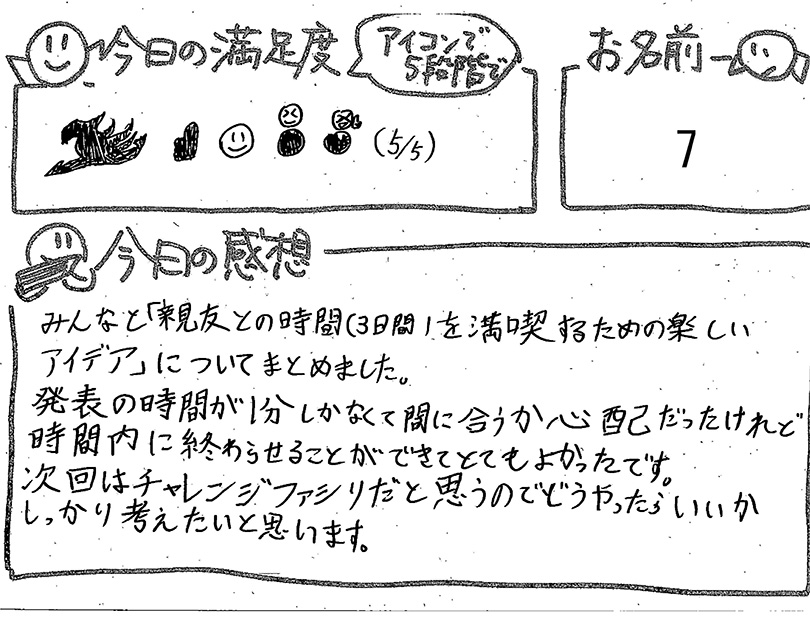 今日の満足度
アイコンで
5段階で
お名前
(5/5)
7
今日の感想
みんなと「親友との時間(3日間)を満喫するための楽しい
アイデア」についてまとめました。
発表の時間が1分しかなくて間に合うか心配だったけれど
時間内に終わらせることができてとてもよかったです。
次回はチャレンジファシリだと思うのでどうやったらいいか
しっかり考えたいと思います。